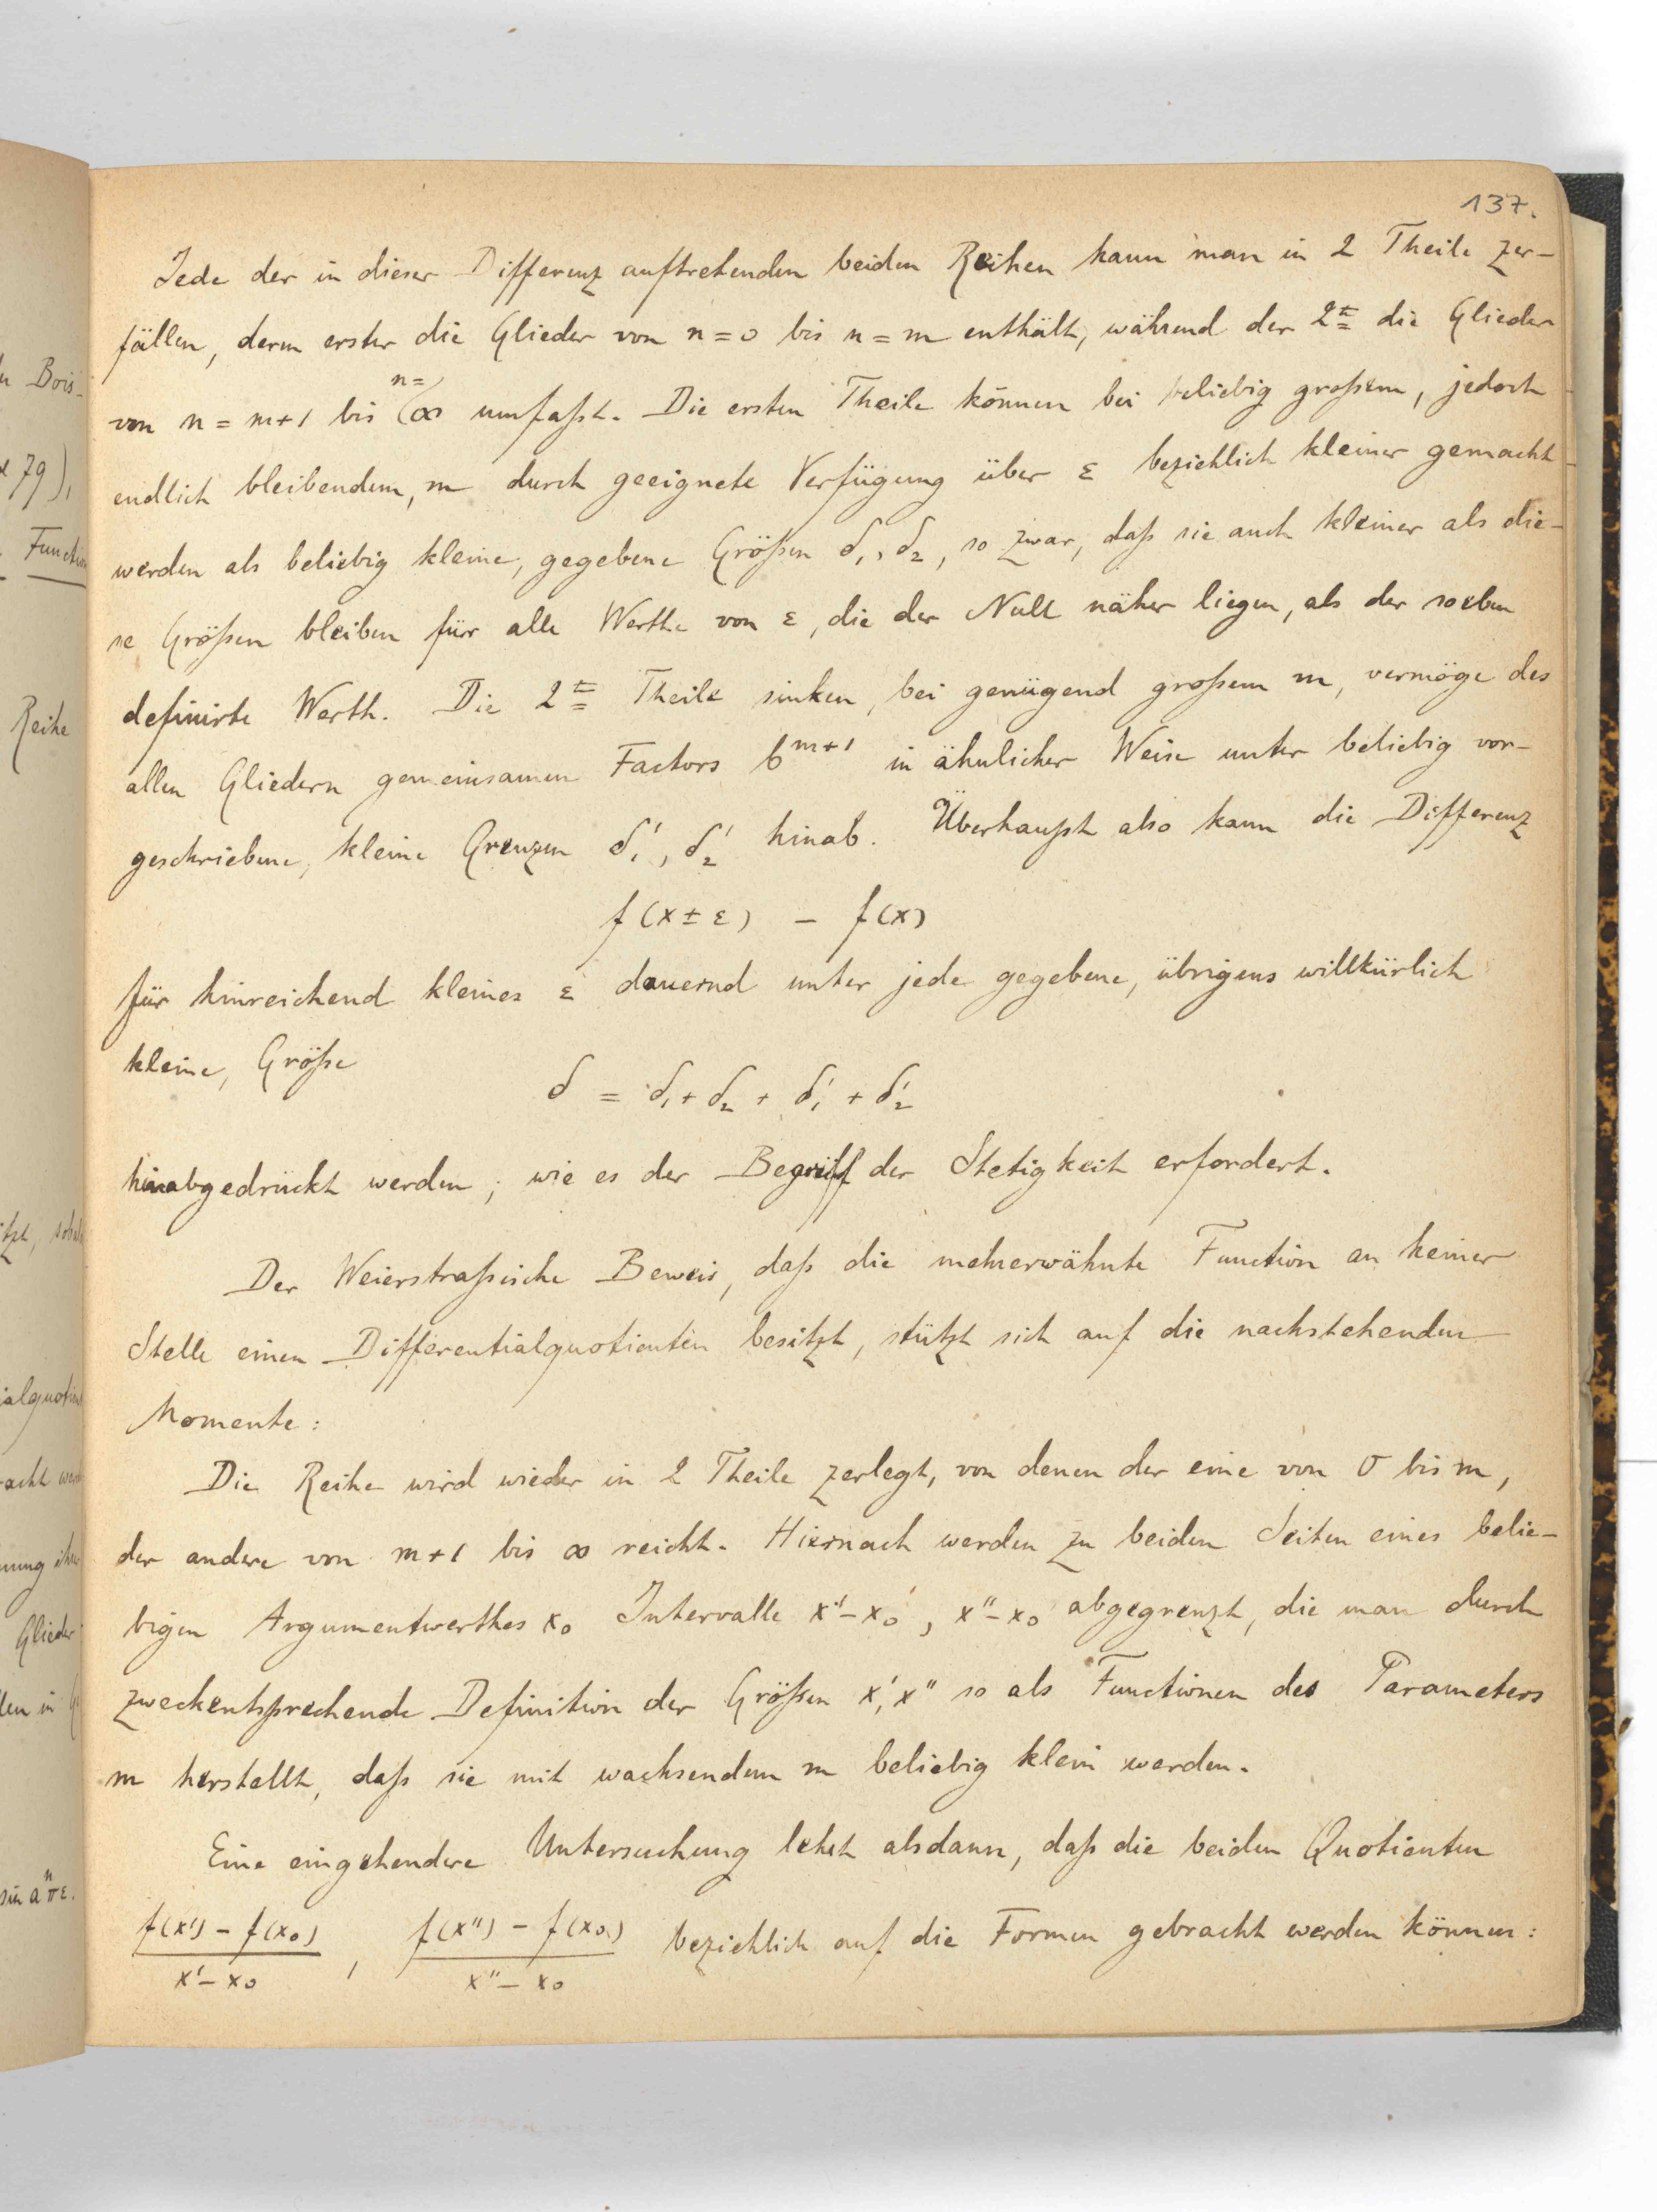 137.
Jede der in dieser Differenz auftretenden beiden Reihen kann man in 2 Theile zer-
fällen, deren erster die Glieder von n = 0 bis n = m enthält, während der 2te die Glieder
von n = m+1 bis n = ∞ umfaßt. Die ersten Theile können bei beliebig großem, jedoch
endlich bleibendem, m durch geeignete Verfügung über ε beziehlich kleiner gemacht
werden als beliebig kleine, gegebene Größen δ₁, δ₂, so zwar, daß sie auch kleiner als die-
se Größen bleiben für alle Werthe von ε, die der Null näher liegen, als der soeben
definirte Werth. Die 2te Theile sinken, bei genügend großem m, vermöge des
allen Gliedern gemeinsamen Factors b^{m+1} in ähnlicher Weise unter beliebig vor-
geschriebene, kleine Grenzen δ₁', δ₂' hinab. Überhaupt also kann die Differenz
f(x ± ε) – f(x)
für hinreichend kleines ε dauernd unter jede gegebene, übrigens willkürlich
kleine, Größe
δ = δ₁ + δ₂ + δ₁' + δ₂'
hinabgedrückt werden; wie es der Begriff der Stetigkeit erfordert.
Der Weierstraßische Beweis, daß die mehrerwähnte Function an keiner
Stelle einen Differentialquotienten besitzt, stützt sich auf die nachstehenden
Momente:
Die Reihe wird wieder in 2 Theile zerlegt, von denen der eine von 0 bis m,
der andere von m+1 bis ∞ reicht. Hiernach werden zu beiden Seiten eines belie-
bigen Argumentwerthes x₀ Intervalle x'–x₀, x''–x₀ abgegrenzt, die man durch
zweckentsprechende Definition der Größen x', x'' so als Functionen des Parameters
m herstellt, daß sie mit wachsendem m beliebig klein werden.
Eine eingehendere Untersuchung lehrt alsdann, daß die beiden Quotienten
(f(x') – f(x₀))/(x' – x₀), (f(x'') – f(x₀))/(x'' – x₀) beziehlich auf die Formen gebracht werden können: